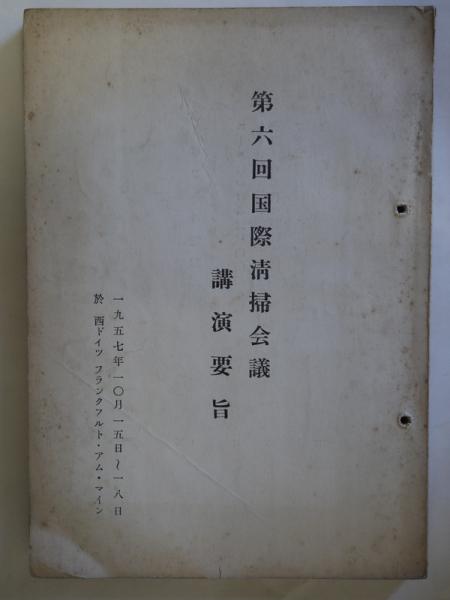 第六回国際清掃会議
講演要旨
一九五七年一〇月一五日～一八日
於 西ドイツ フランクフルト・アム・マイン